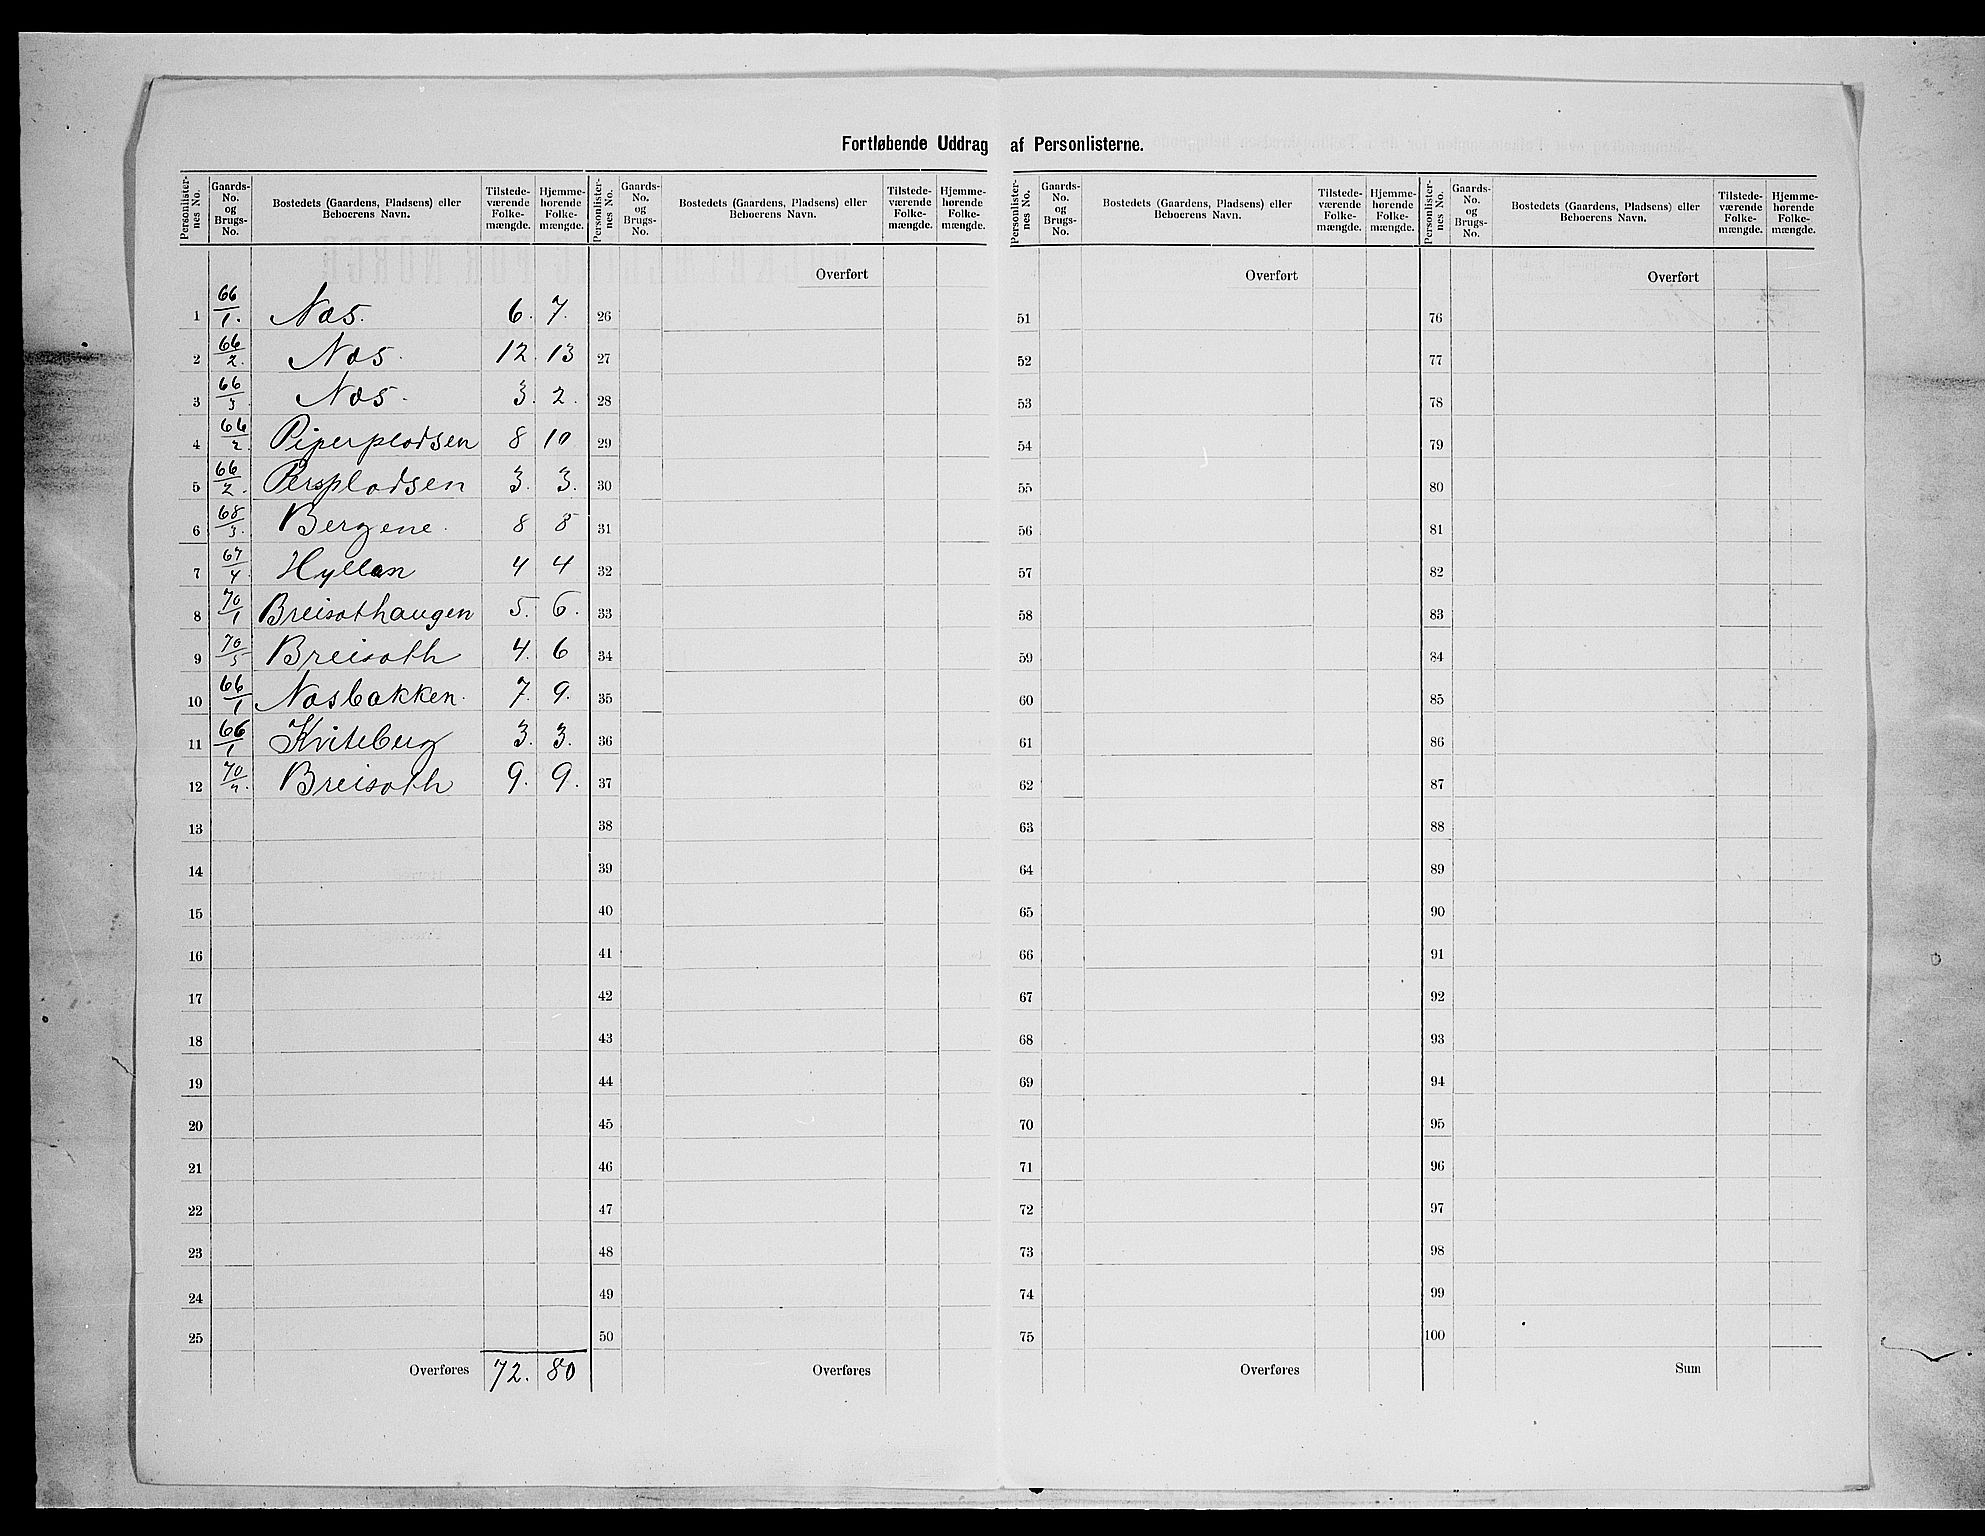 Fortløbende Uddrag af Personlisterne.
Personlisternes No. Gaards-No. og Brugs-No. Bostedets (Gaardens, Pladsens) eller Beboerens Navn. Tilstedeværende Folkemængde. Hjemmehørende Folkemængde.
Personlisternes No. Gaards-No. og Brugs-No. Bostedets (Gaardens, Pladsens) eller Beboerens Navn. Tilstedeværende Folkemængde. Hjemmehørende Folkemængde.
Personlisternes No. Gaards-No. og Brugs-No. Bostedets (Gaardens, Pladsens) eller Beboerens Navn. Tilstedeværende Folkemængde. Hjemmehørende Folkemængde.
Personlisternes No. Gaards-No. og Brugs-No. Bostedets (Gaardens, Pladsens) eller Beboerens Navn. Tilstedeværende Folkemængde. Hjemmehørende Folkemængde.
Overført Overført Overført
1 66/1. Næs. 6. 7. 26 51 76
2 66/2. Næs. 12. 13 27 52 77
3 66/3. Næs. 3. 2. 28 53 78
4 66/2. Piperpladsen 8 10 29 54 79
5 66/2. Perspladsen 3. 3. 30 55 80
6 68/3. Bergene. 8 8 31 56 81
7 67/4. Hyllan 4 4 32 57 82
8 70/1 Breisathaugen 5. 6. 33 58 83
9 70/5 Breisath 4. 6 34 59 84
10 66/1 Næsbakken. 7. 9. 35 60 85
11 66/1 Kviteberg 3. 3. 36 61 86
12 70/ Breisath 9. 9. 37 62 87
13 38 63 88
14 39 64 89
15 40 65 90
16 41 66 91
17 42 67 92
18 43 68 93
19 44 69 94
20 45 70 95
21 46 71 96
22 47 72 97
23 48 73 98
24 49 74 99
25 50 75 100
Overføres 72. 80 Overføres Overføres Sum